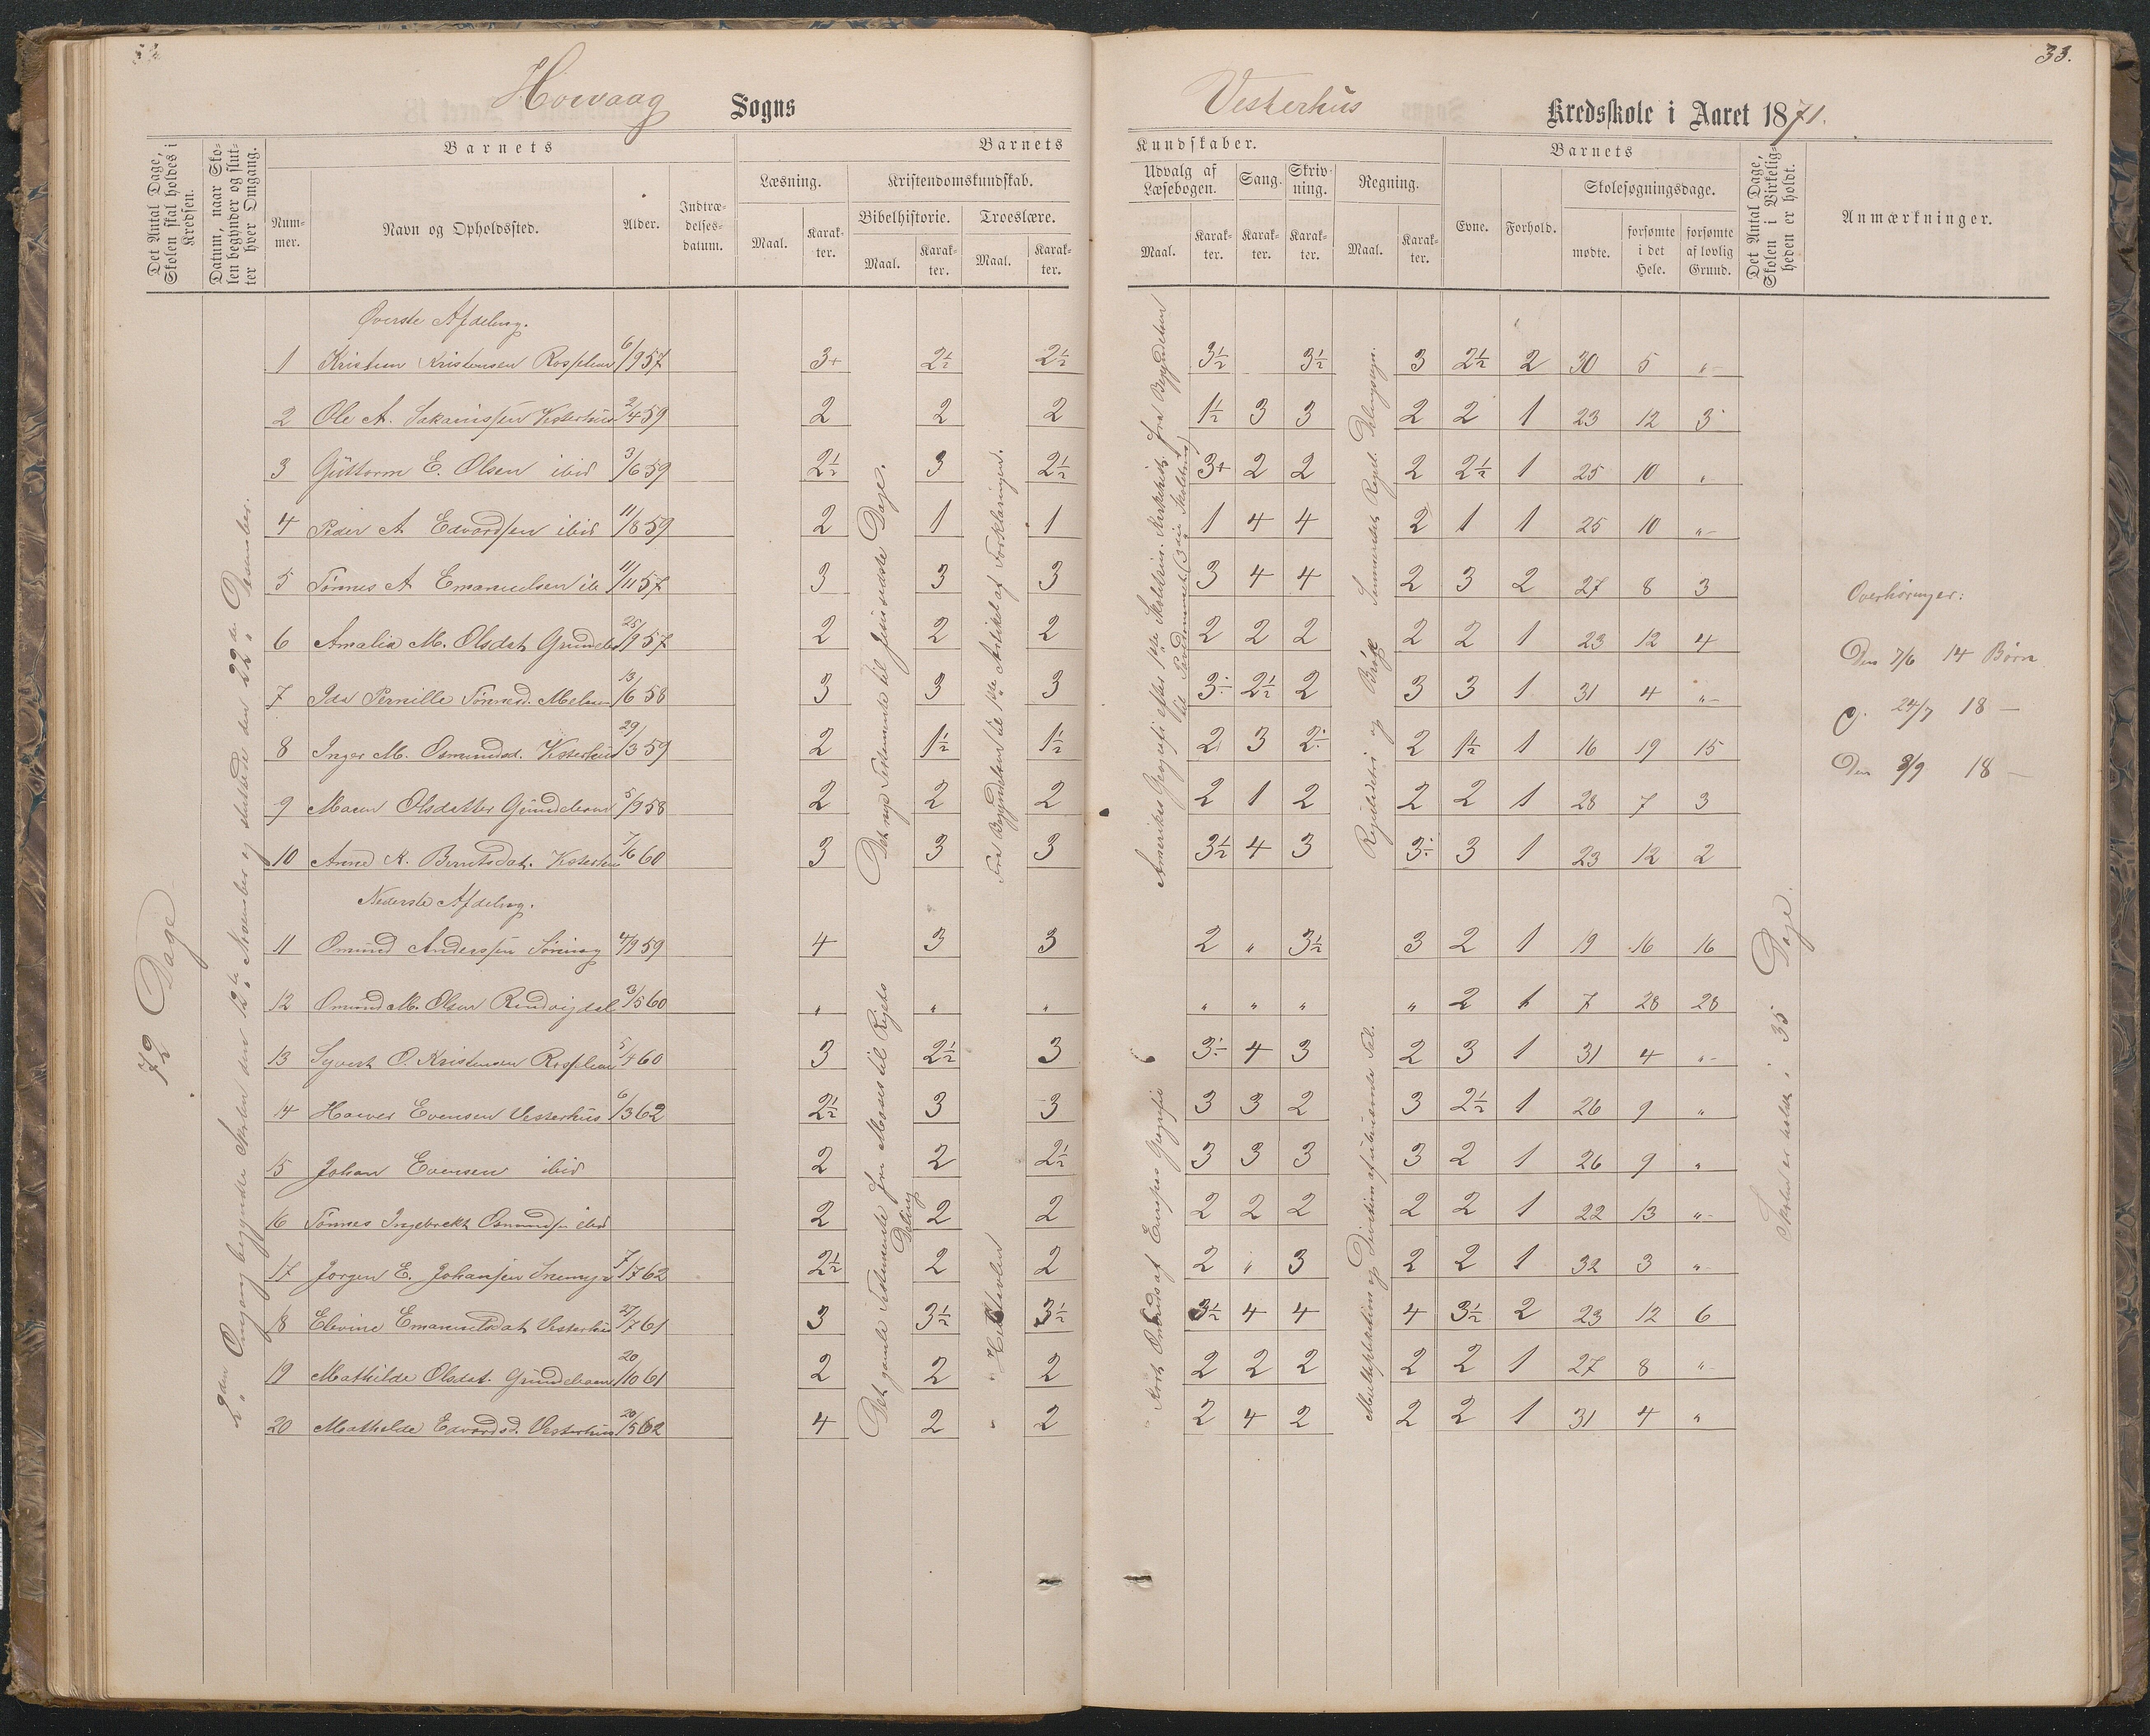 33.
Høivaag Sogns Vesterhus Kredsskole i Aaret 1871.
Det Antal Dage, Skolen skal holdes i Kredsen.
Datum, naar Skolen begynder og slutter hver Omgang.
Barnets
Nummer.
Navn og Opholdssted.
Alder.
Indtrædelsesdatum.
Barnets Kundskaber.
Læsning.
Maal.
Karakter.
Kristendomskundskab.
Bibelhistorie.
Maal.
Karakter.
Troeslære.
Maal.
Karakter.
Udvalg af Læsebogen.
Maal.
Karakter.
Sang.
Karakter.
Skrivning.
Karakter.
Regning.
Maal.
Karakter.
Barnets
Evne.
Forhold.
Skolesøgningsdage.
mødte.
forsømte i det Hele.
forsømte af lovlig Grund.
Det Antal Dage, Skolen i Virkeligheden er holdt.
Anmærkninger.
72 Dage
2den Omgang begyndte Skolen den 12te November og sluttede den 22de Desember.
Øverste Afdeling.
1 Kristian Kristensen Rosseland 6/9 57 3+ 2½ 2½ 3½ 3½ 3 2½ 2 30 5 "
2 Ole A. Sakariassen Vesterhus 2/4 59 2 2 2 1½ 3 3 2 2 1 23 12 3
3 Guttorm E. Olsen ibid 3/6 59 2½ 3 2½ 3+ 2 2 2 2½ 1 25 10 "
4 Peder A Edvardsen ibid 11/8 59 2 1 1 1 4 4 2 1 1 25 10 "
5 Tønnes A Emanuelsen ib 11/11 57 3 3 3 3 4 4 2 3 2 27 8 3
6 Amalia M. Olsdat 25/9 57 2 2 2 2 2 2 2 2 1 23 12 4
7 Ida Pernille Tønnesd. 13/6 58 3 3 3 3÷ 2½ 2 3 3 1 31 4 "
8 Inger M. Osmundsd. Vesterhus 29/3 59 2 1½ 1½ 2 3 2÷ 2 1½ 1 16 19 15
9 Maren Olsdatter 5/9 58 2 2 2 2 1 2 2 2 1 28 7 3
10 Anne K. Berntsdat. Vesterhus 7/6 60 3 3 3 3½ 4 3 3÷ 3 1 23 12 2
Det nye Testamente til Jesu sidste Dage.
Fra Begyndelsen til 1ste Artikel af Forklaringen.
Regula de tri og Brøk
Nederste Afdeling.
11 Omund Anderssen 4/9 59 4 3 3 2 " 3½ 3 2 1 19 16 16
12 Omund M. Olsen 3/5 60 " " " " " " " 2 1 7 28 28
13 Syvert O. Kristensen Rosseland 5/4 60 3 2½ 3 3÷ 4 3 2 3 1 31 4 "
14 Haaver Evensen Vesterhus 6/3 62 2½ 3 3 3 3 2 3 2½ 1 26 9 "
15 Johan Evensen ibid 2 2 2½ 3 3 3 3 2 1 26 9 "
16 Tønnes Ingebrekt Osmundsen ibid 2 2 2 2 2 2 2 2 1 22 13 "
17 Jørgen E. Johansen 7/7 62 2½ 2 2 2 " 3 2 2 1 32 3 "
18 Elevine Emanuelsdat Vesterhus 27/7 61 3 3½ 3½ 3½ 4 4 4 3½ 2 23 12 6
19 Mathilde Olsdat. 20/10 61 2 2 2 2 2 2 2 2 1 27 8 "
20 Mathilde Edvardsd. Vesterhus 20/5 62 4 2 2 2 4 2 2 2 1 31 4 "
Det gamle Testamente fra Moses til Rigets Deling
Multiplikation og Division af ubenævnte Tal.
Skolen er holdt i 35 Dage.
Overhøringer:
Den 7/6 14 Børn
24/7 18 —
Den 8/9 18 —